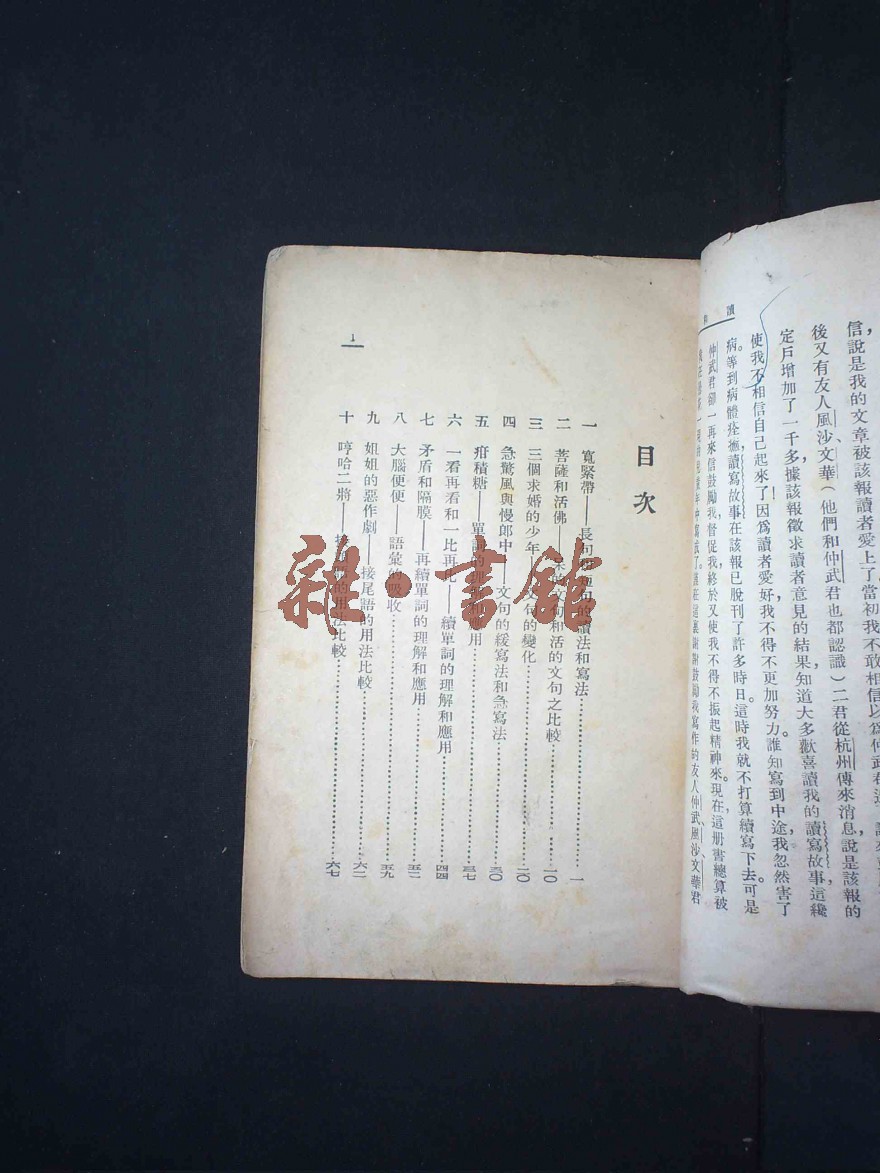 信說是我的文章被該報讀者愛上了當初我不敢相信以爲仲武君
後又有友人風沙、文華（他們和仲武君也都認識）二君從杭州傳來消息，說是該報的
定戶增加了一千多，據該報徵求讀者意見的結果，知道大多歡喜讀我的讀寫故事，這纔
使我不相信自己起來了！因爲讀者愛好，我不得不更加努力。誰知寫到中途，我忽然害了
病。等到病體痊癒，讀寫故事在該報已脫刊了許多時日。這時我就不打算續寫下去，可是
仲武君卻一再來信鼓勵我，督促我，終於又使我不得不振起精神來。現在這册書總算被
謝謝鼓勵我寫作的友人仲武、風沙、文華君
讀
目次
一 寬緊帶——長句和短句的讀法和寫法 一
二 菩薩和活佛——的文句和活的文句之比較 一〇
三 三個求婚的少年——文句的變化 二〇
四 急驚風與慢郎中——文句的緩寫法和急寫法 三〇
五 疳積糖——單詞的用 三七
六 一看再看和一比再比——續單詞的理解和應用 四四
七 矛盾和隔膜——再續單詞的理解和應用 五二
八 大腦便便——語彙的吸收 五九
九 姐姐的惡作劇——接尾語的用法比較 六二
十 哼哈二將——的用法比較 六七
1
雜·書館